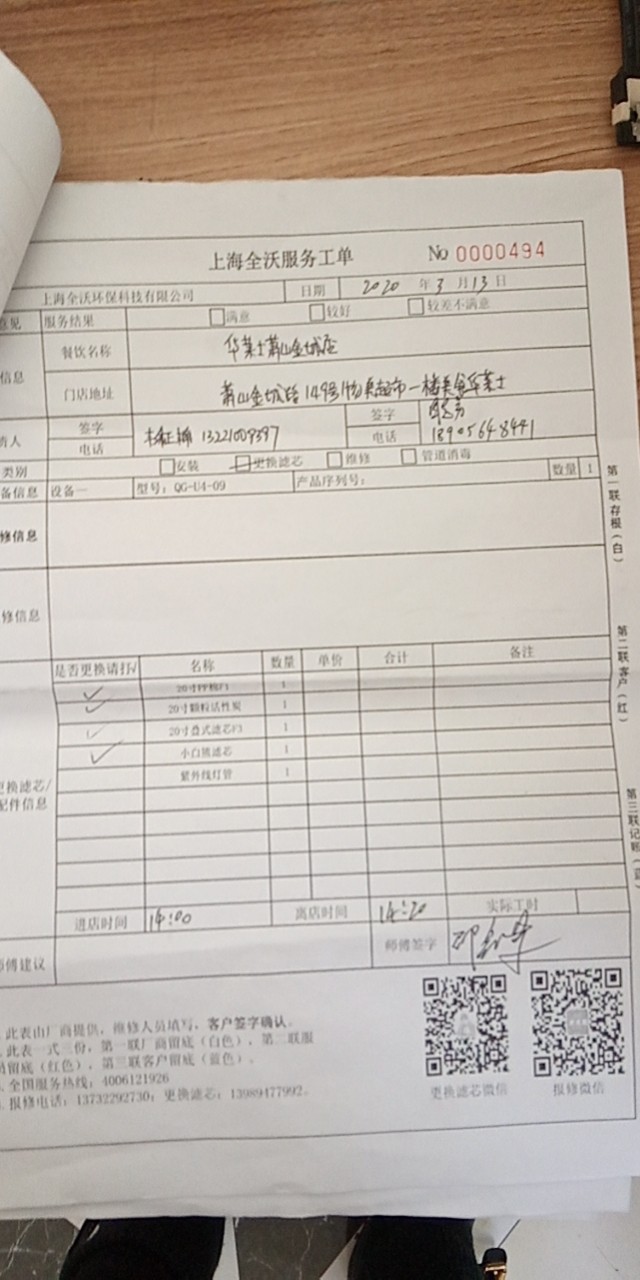 上海全沃服务工单 No 0000494
上海全沃环保科技有限公司 日期 2020 年 3 月 13 日
意见 服务结果 满意 较好 较差不满意
信息 餐饮名称 华莱士萧山金城店
门店地址 萧山金城路149号物美超市一楼美食华莱士
请人 签字 签字
电话 13221009397 电话
类别 安装 更换滤芯 维修 管道消毒
备信息 设备一 型号：QG-U4-09 产品序列号： 数量 1
修信息
修信息
是否更换请打√ 名称 数量 单价 合计 备注
✓ 20寸PP棉F1 1
✓ 20寸颗粒活性炭 1
✓ 20寸叠式滤芯F3 1
✓ 小白熊滤芯 1
紫外线灯管 1
更换滤芯/
配件信息
进店时间 14:00 离店时间 14:20 实际工时
师傅建议 师傅签字
此表由厂商提供，维修人员填写，客户签字确认。
此表一式三份，第一联厂商留底（白色），第二联服
留底（红色），第三联客户留底（蓝色）。
全国服务热线：4006121926
报修电话：13732292730；更换滤芯：13989477992。
更换滤芯微信 报修微信
第一联存根（白）
第二联客户（红）
第三联记账